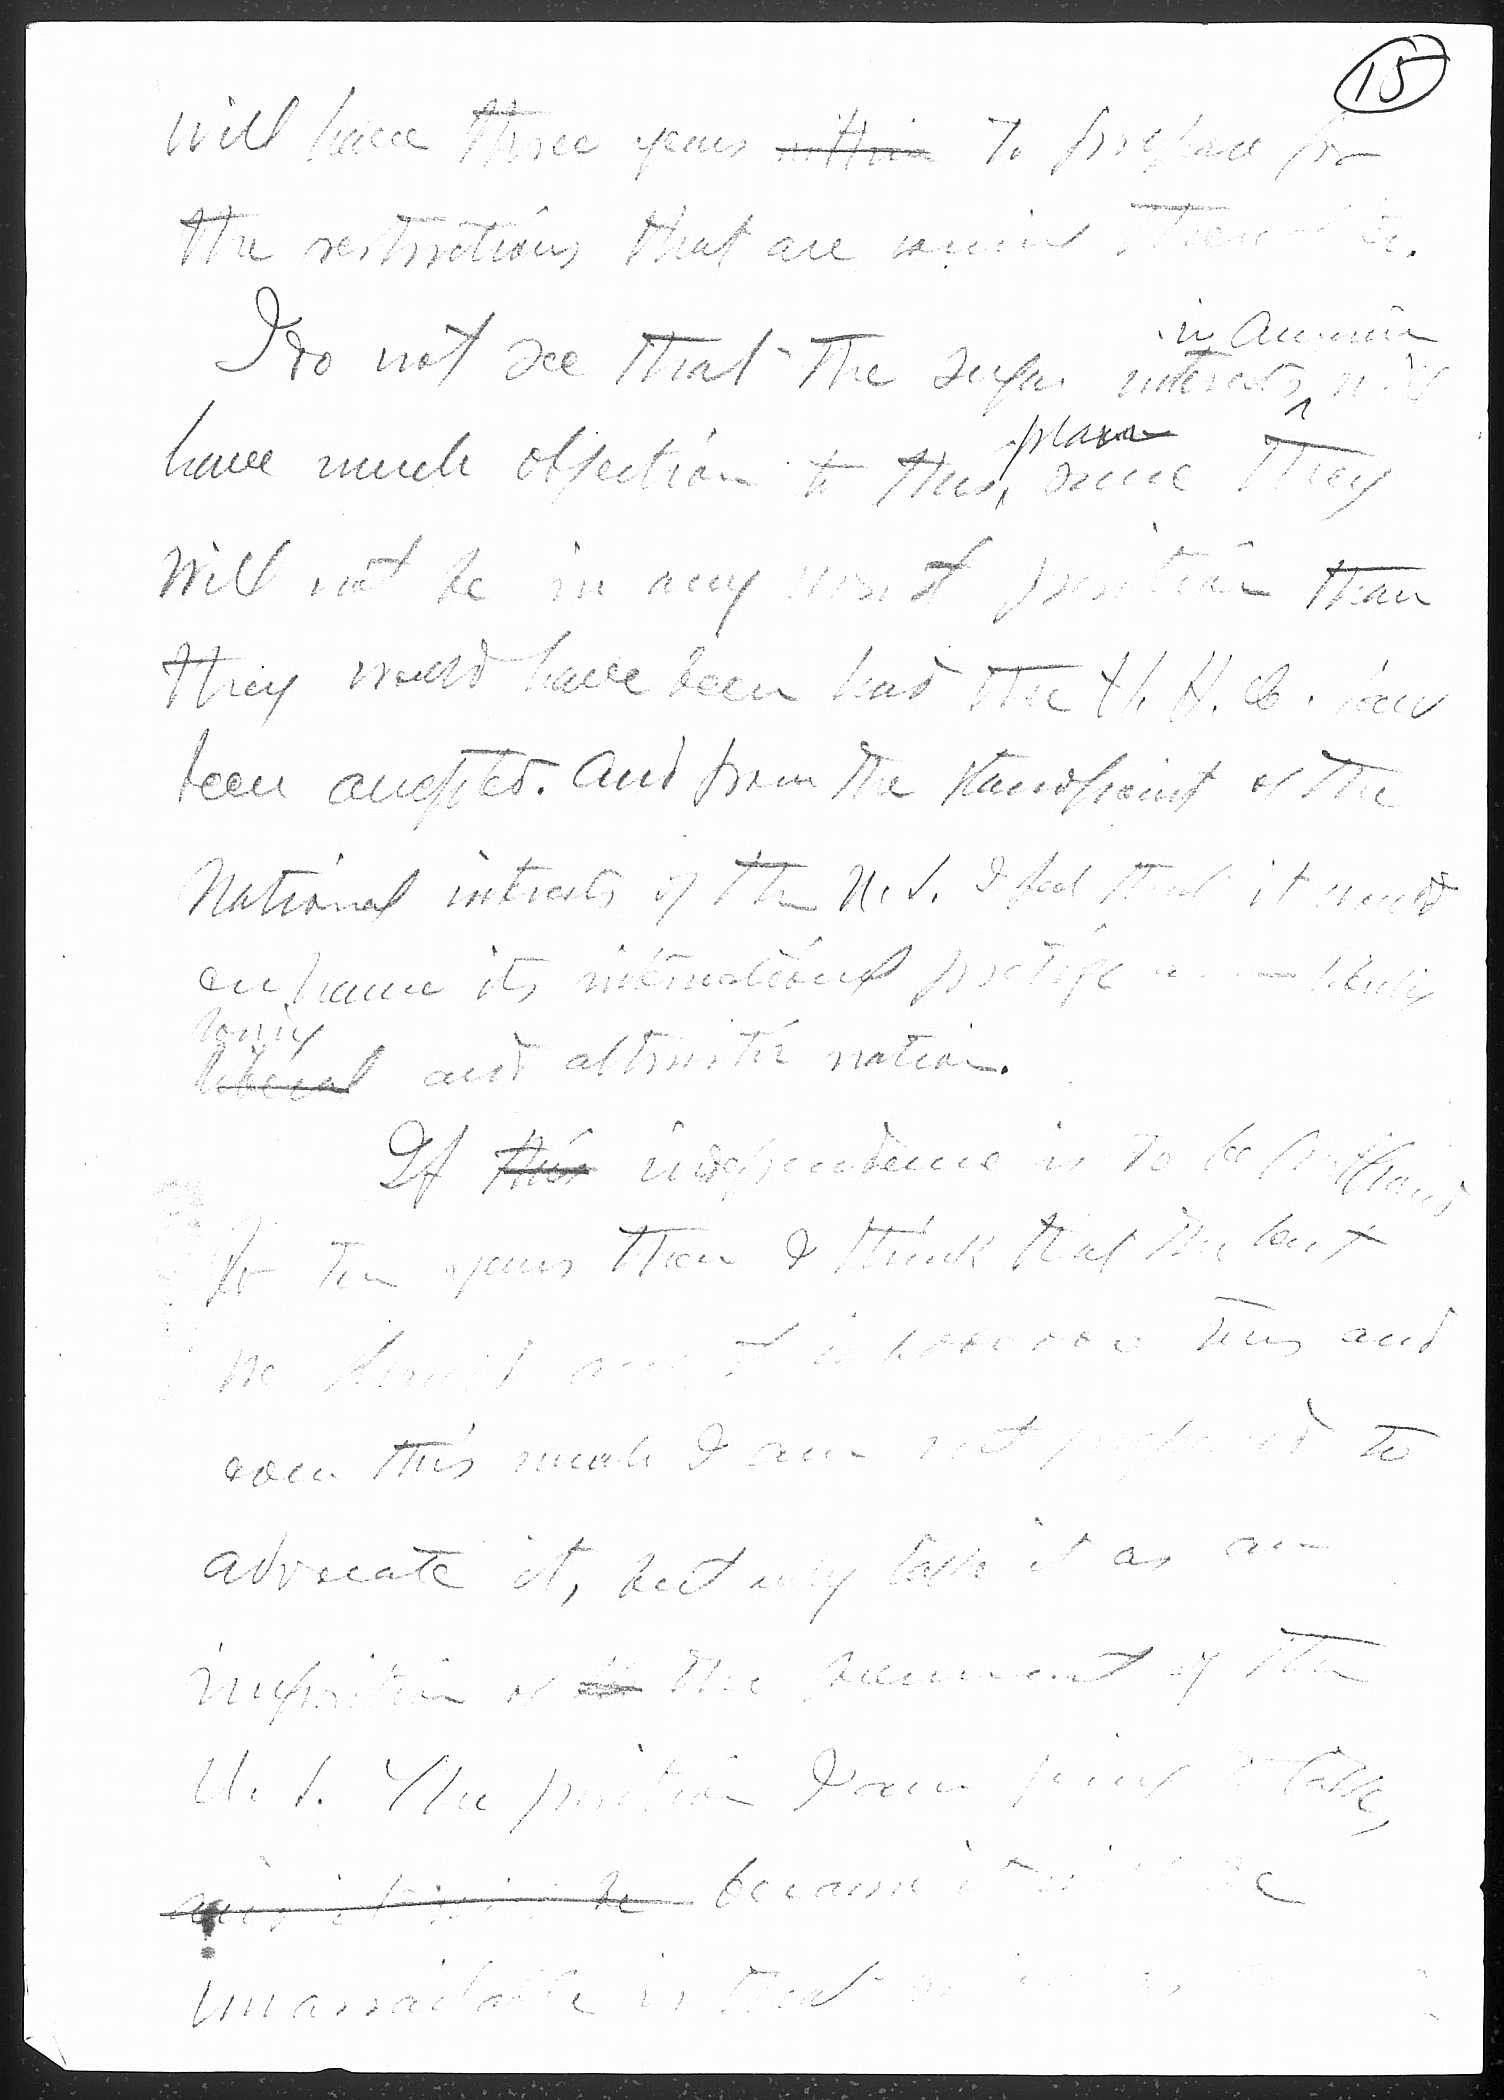 15
will have three years ~~within~~ to prepare for
the restrictions that are coming
in America
I do not see that the sugar interests will
plan
have much objection to this, since they
will not be in any worst position than
they would have been had the H. H. C. law
been accepted. And from the standpoint of the
National interests of the U.S. I feel that it would
enhance its international prestige
loving
~~liberal~~ and altruistic nation.
If ~~this~~ independence is to be
for ten years then I think that the best
we should tons and
even this much I am not prepared to
advocate it, but only take it as an
imposition of the government of the
U. S. The position I am going to take,
~~and it will be~~ because it will be
unassailable is that